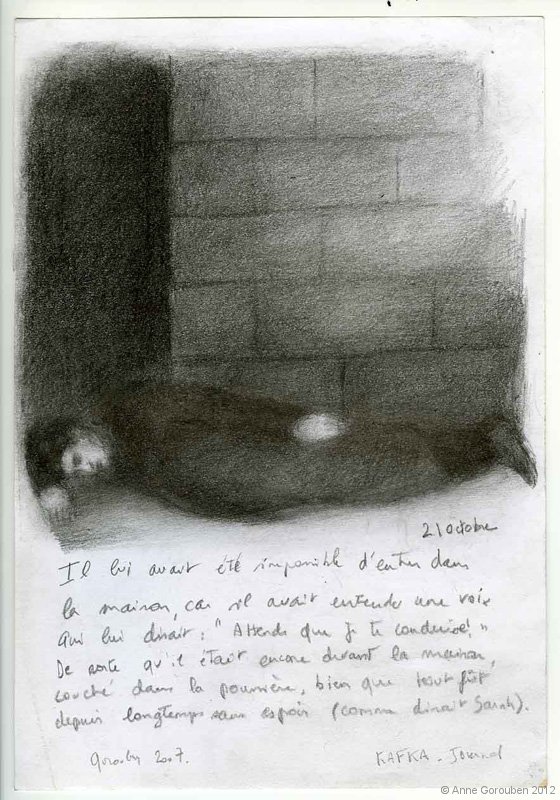 21 octobre
Il lui avait été impossible d'entrer dans
la maison, car il avait entendu une voix
qui lui disait : "Attends que je te conduise!"
De sorte qu'il était encore devant la maison,
couché dans la poussière, bien que tout fût
depuis longtemps sans espoir (comme dirait Sarah).
Gorouben 2007.
KAFKA - Journal
© Anne Gorouben 2012